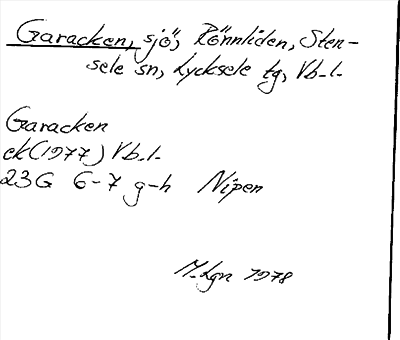 Garacken, sjö, Rönnliden, Sten-
sele sn, Lycksele tg, Vb. l.
Garacken
ek (1977) Vb. l.
23G 6-7 g-h Nipen
M. Lgn 1978